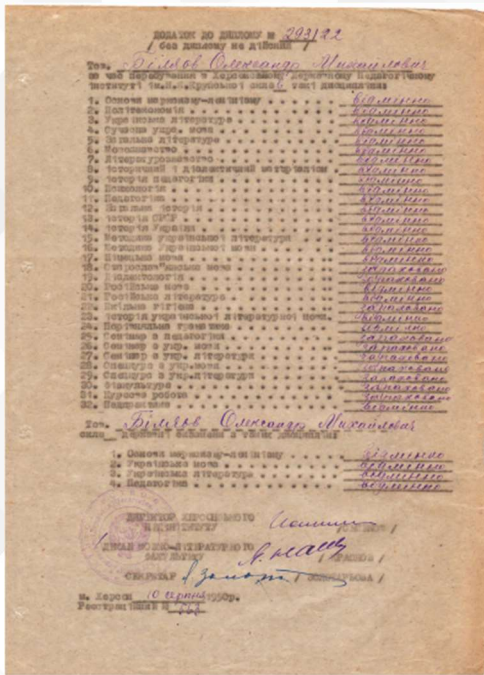 ДОДАТОК ДО ДИПЛОМУ № 293122
/ без диплому не дійсний /
Тов. Біляєв Олександр Михайлович
за час перебування в Херсонському Державному Педагогічному
інституті ім. Н.К.Крупської склав такі дисципліни:
1. Основи марксизму-ленінізму відмінно
2. Політекономія відмінно
3. Українська література відмінно
4. Сучасна укр. мова відмінно
5. Загальна література відмінно
6. Мовознавство відмінно
7. Літературознавство відмінно
8. Історичний і діалектичний матеріалізм відмінно
9. Історія педагогіки відмінно
10. Психологія відмінно
11. Педагогіка відмінно
12. Загальна історія відмінно
13. Історія СРСР відмінно
14. Історія України відмінно
15. Методика української літератури відмінно
16. Методика Української мови відмінно
17. Німецька мова відмінно
18. Старослов'янська мова зараховано
19. Діалектологія зараховано
20. Російська мова відмінно
21. Російська література відмінно
22. Шкільна гігієна зараховано
23. Історія української літературної мови відмінно
24. Порівняльна граматика відмінно
25. Семінар з педагогіки зараховано
26. Семінар з укр. мови зараховано
27. Семінар з укр. літератури зараховано
28. Спецкурс з укр. мови зараховано
29. Спецкурс з укр. літератури зараховано
30. Фізкультура зараховано
31. Курсова робота зараховано
32. Педпрактика відмінно
Тов. Біляєв Олександр Михайлович
склав державні екзамени з таких дисциплін:
1. Основи марксизму-ленінізму відмінно
2. Українська мова відмінно
3. Українська література відмінно
4. Педагогіка відмінно
ДИРЕКТОР ХЕРСОНСЬКОГО
ПЕДІНСТИТУТУ
ДЕКАН МОВНО-ЛІТЕРАТУРНОГО
ФАКУЛЬТЕТУ
СЕКРЕТАР
м. Херсон 10 серпня 1950р.
Реєстраційний №